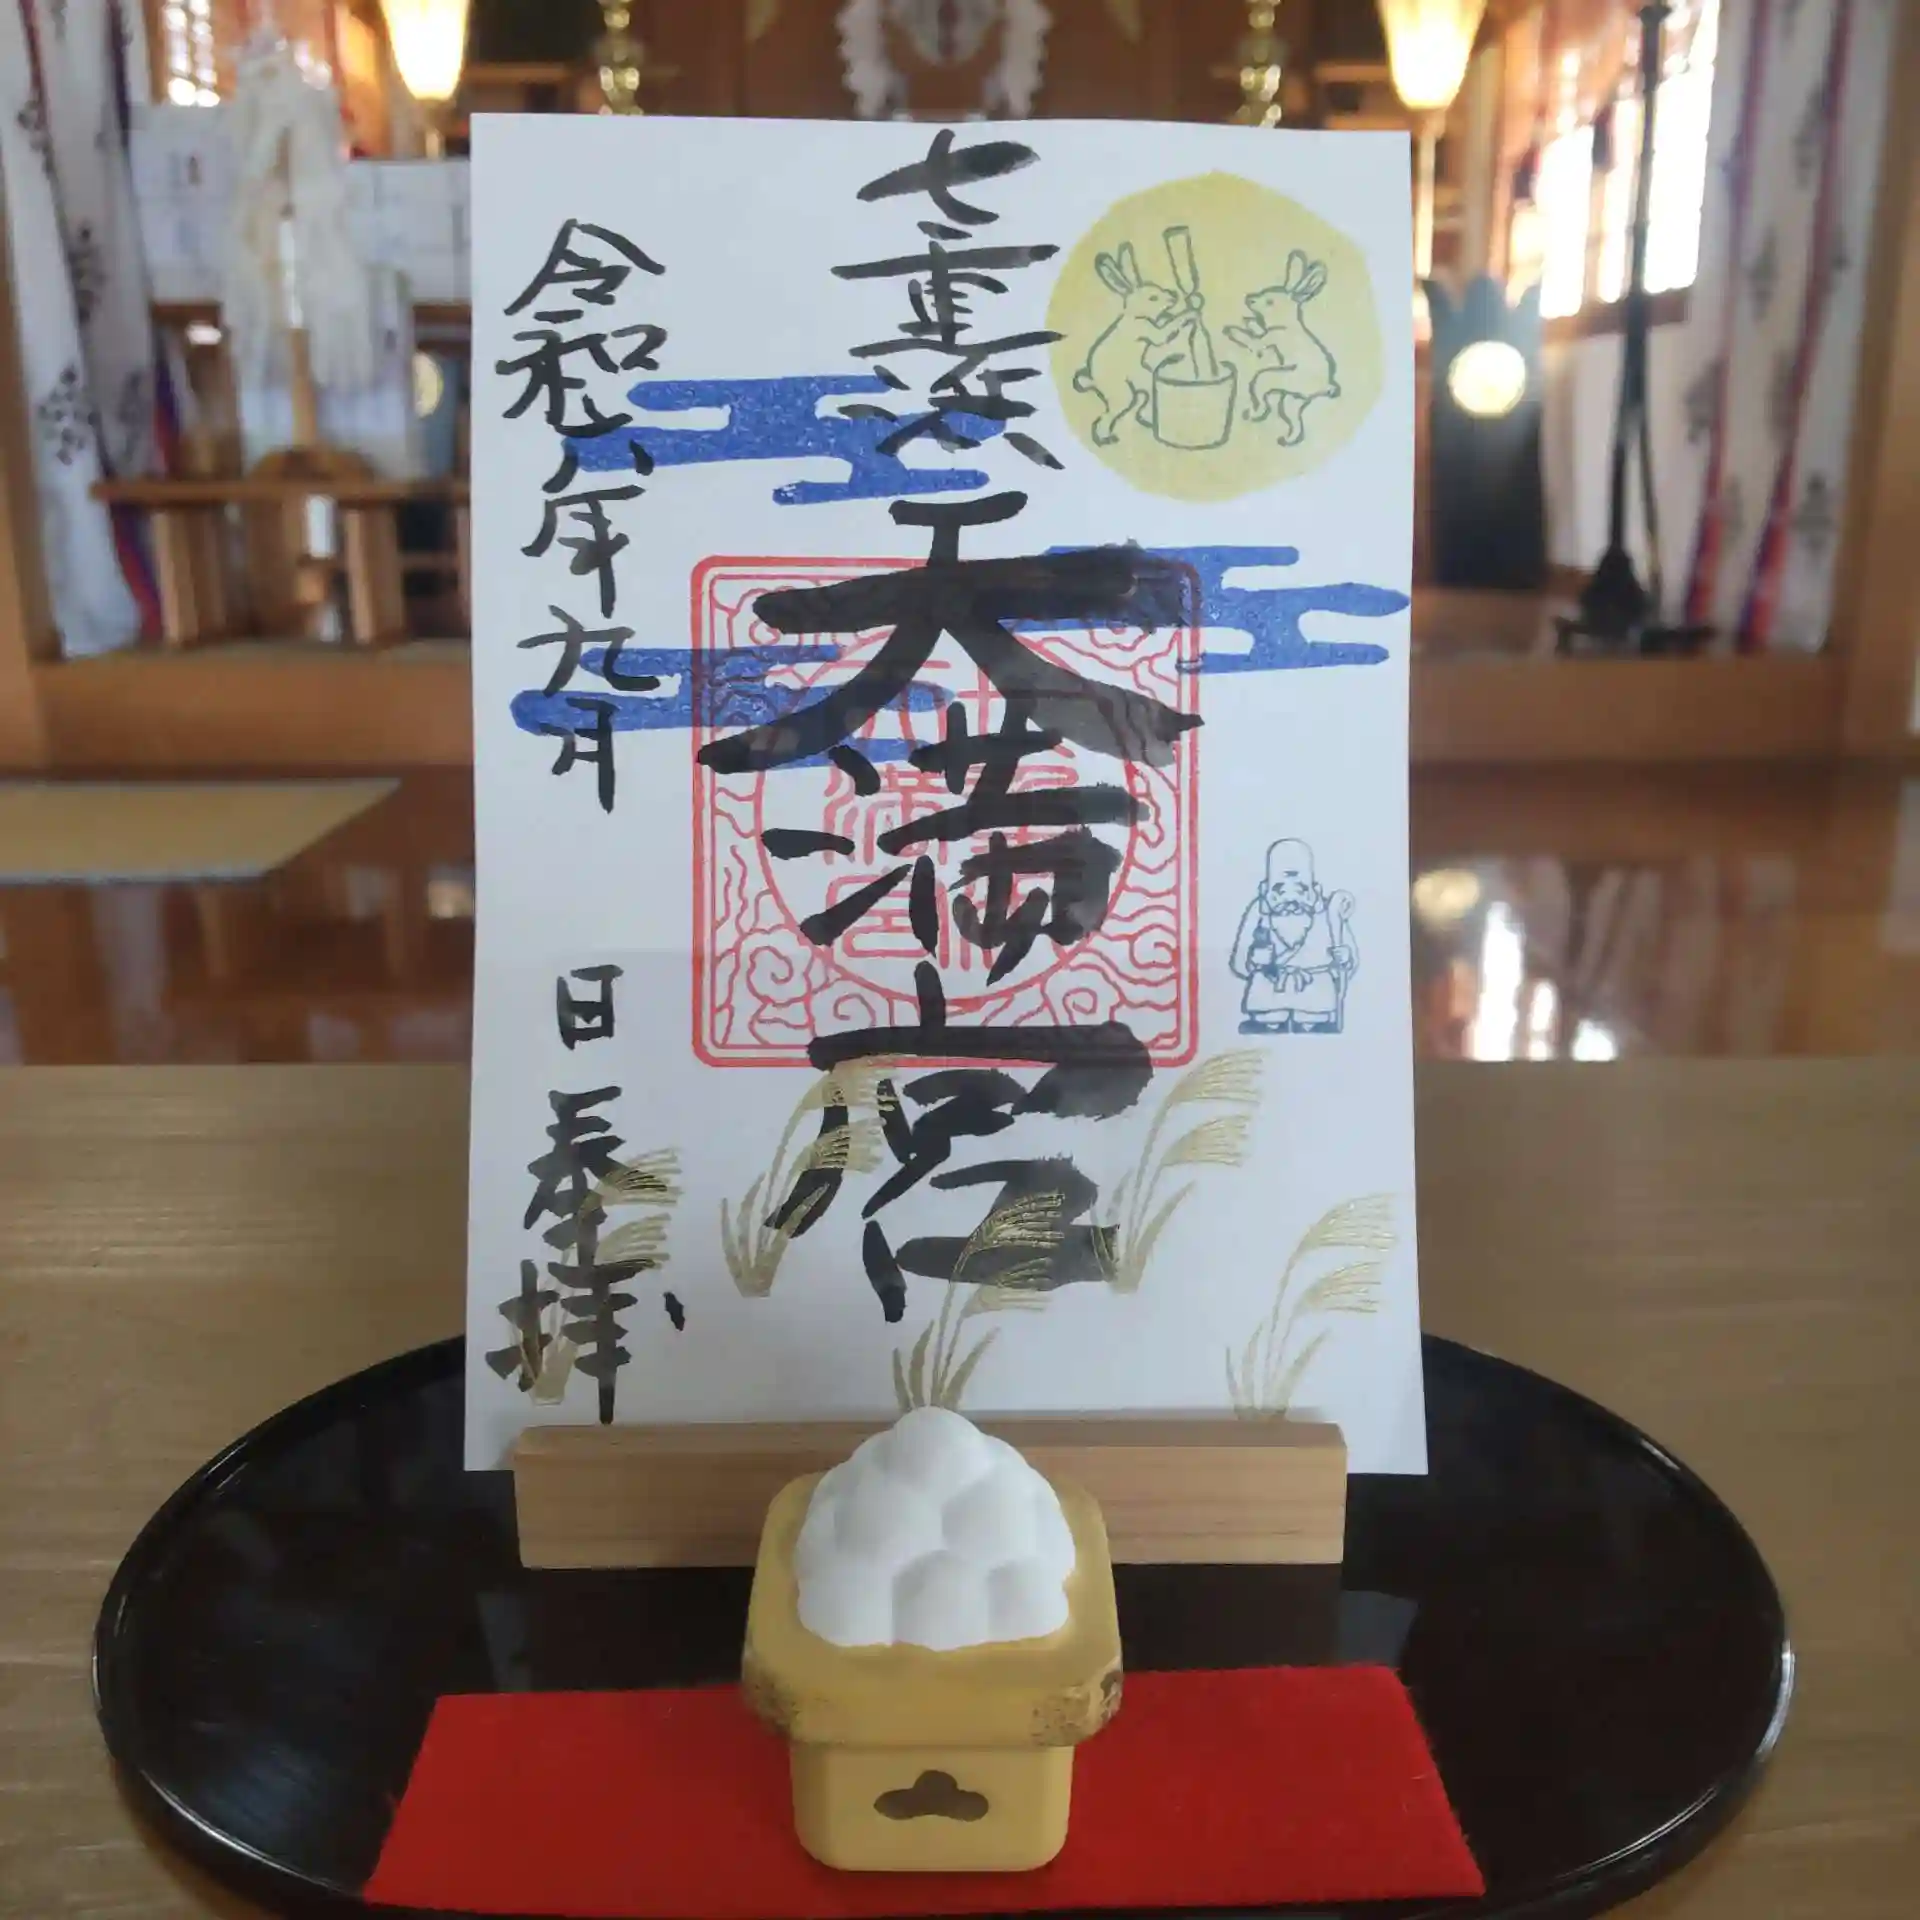 七重浜
天満宮
令和六年九月 日
奉拝